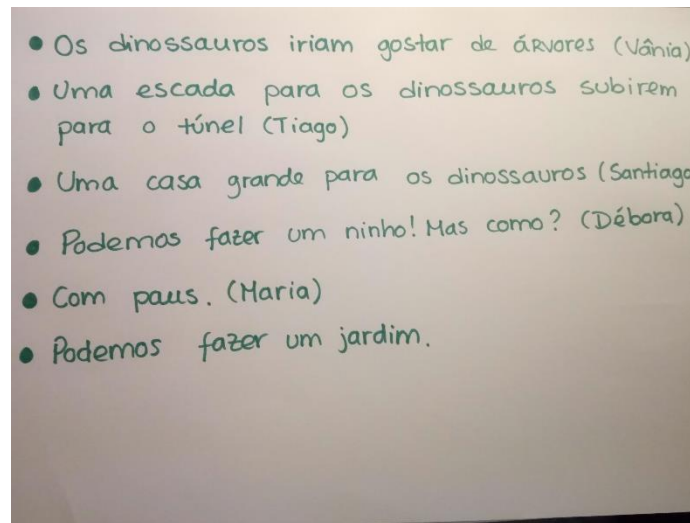 • Os dinossauros iriam gostar de árvores (Vânia)
• Uma escada para os dinossauros subirem
para o túnel (Tiago)
• Uma casa grande para os dinossauros (Santiago
• Podemos fazer um ninho! Mas como? (Débora)
• Com paus. (Maria)
• Podemos fazer um jardim.